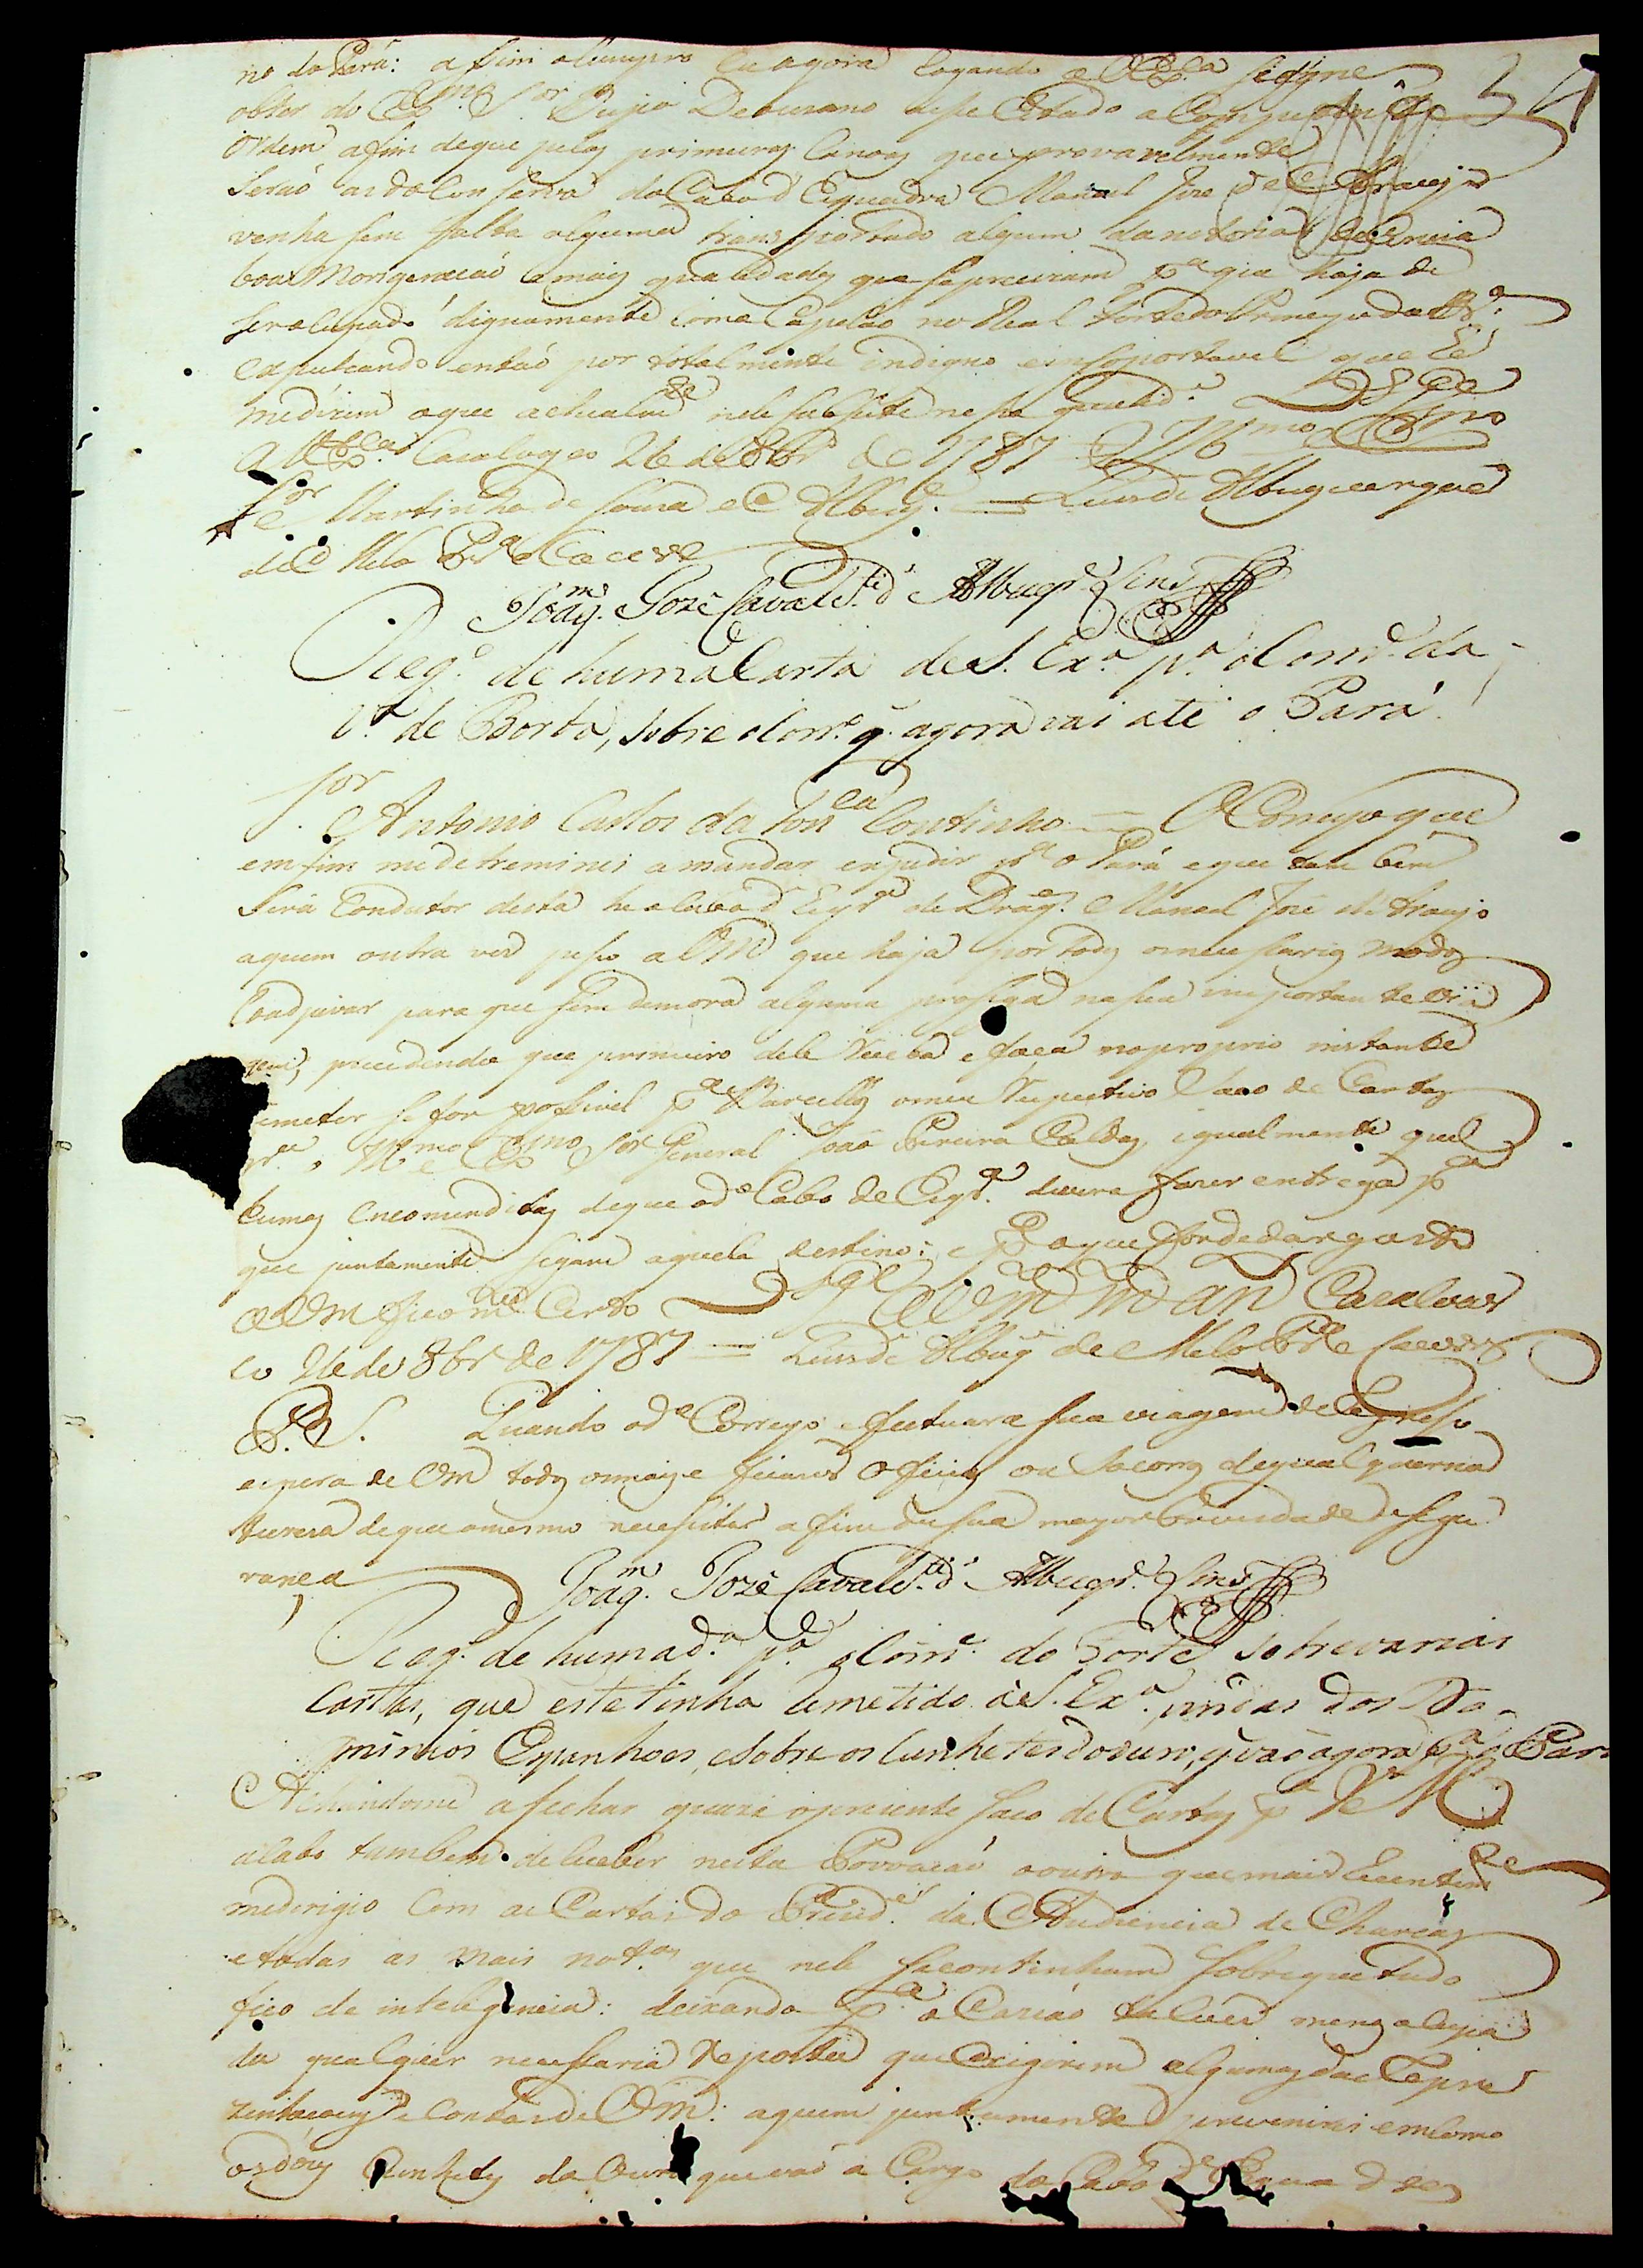 no do Pará: afim
obter do Exmo Sor Bispo Deocesano desse Estado a Competente
Ordem, afim deque pelas primeiras Canoas que provavelmente
Seraõ as da Conserva do Cabo d'Esquadra Manoel Joze de Araujo
venha sem falta alguma transportado algum Sacerdote
boa Morigeraçaõ e mais qualidades que se precizam pa que haja de
ser ocupado dignamente como Capelaõ no Real Forte do Principe da Bra
expulsando entaõ por totalmente indigno e insoportavel que he
o que actualmte nele subsiste nessa qualide Ds ge
a VExca Casalvasco 26 de 8bro de 1787 = Illmo e Exmo
Sor Martinho de Souza e Albuqe = Luis de Albuquerque
de Mello Pra e Caceres
Joaqm Jozé Cavalcte d'Albuqr.e Lins
Regº de huma Carta de S. Exa pa o Come da
Va de Borba, sobre o Corro q agora vai até o Pará
Sor
Antonio Carlos da Fonca Coutinho = O Correyo que
em fim me detreminei a mandar expedir pa o Pará e que tambem
Será Condutor desta he o Cabo d'Esqra de Drags Manoel Joze de Araujo
aquem outra vez peço a VM que haja por todos os necessarios modos
Coadjuvar para que sem demora alguma prosiga na sua importante
precedendo que primeiro dele Receba e faça no proprio instante
remeter se for possivel pa Barcellos o meu Respectivo Saco de Cartas
pa o Illmo e Exmo Sor General Joaõ Pereira Caldas, igualmente que
humas encomenditas deque o do Cabo de Esqra devera fazer entrega pa
que juntamente sigam aquele destino: e pa o que for de dar gosto
a VM fico mto Certo Ds ge a VM ms an Casalvas
co 26 de 8bro de 1787 = Luis de Albuqe de Mello Pra e Caceres
P. S. Quando o do Correyo efectuar a sua viagem de Regresso
espera de VM todos os mais eficazes Oficios ou Socorros de qualquer na
tureza de que o mesmo necessitar afim da sua mayor brevidade e segu
rança
Joaqm Jozé Cavalcte d'Albuqr.e Lins
Regº de huma da pa o Come do Forte sobre varias
Cartas, que este tinha remetido a S. Exa vindas dos Do-
minios Espanhoes, e sobre os Cunhetes do ouro, q vaõ agora pa o Pará
Achandome a fechar quazi o prezente Saco de Cartas pa VM
acabo tambem de receber nesta Povoaçaõ o outro que mais Recentemte
me derigio Com as Cartas do Prezide da Audiencia de Charcas
e todas as mais notas que nele se continham sobre que tudo
fico de inteligencia: deixando pa o Cazião talvez menos ocupa
da qualquer necessaria Reposta que exigirem algumas das Repre
zentaçoens e Contas de VM: aquem juntamente prevenirei em Como
os dous Cunhetes do Ouro que vaõ a Cargo do Cabo de Esquadra